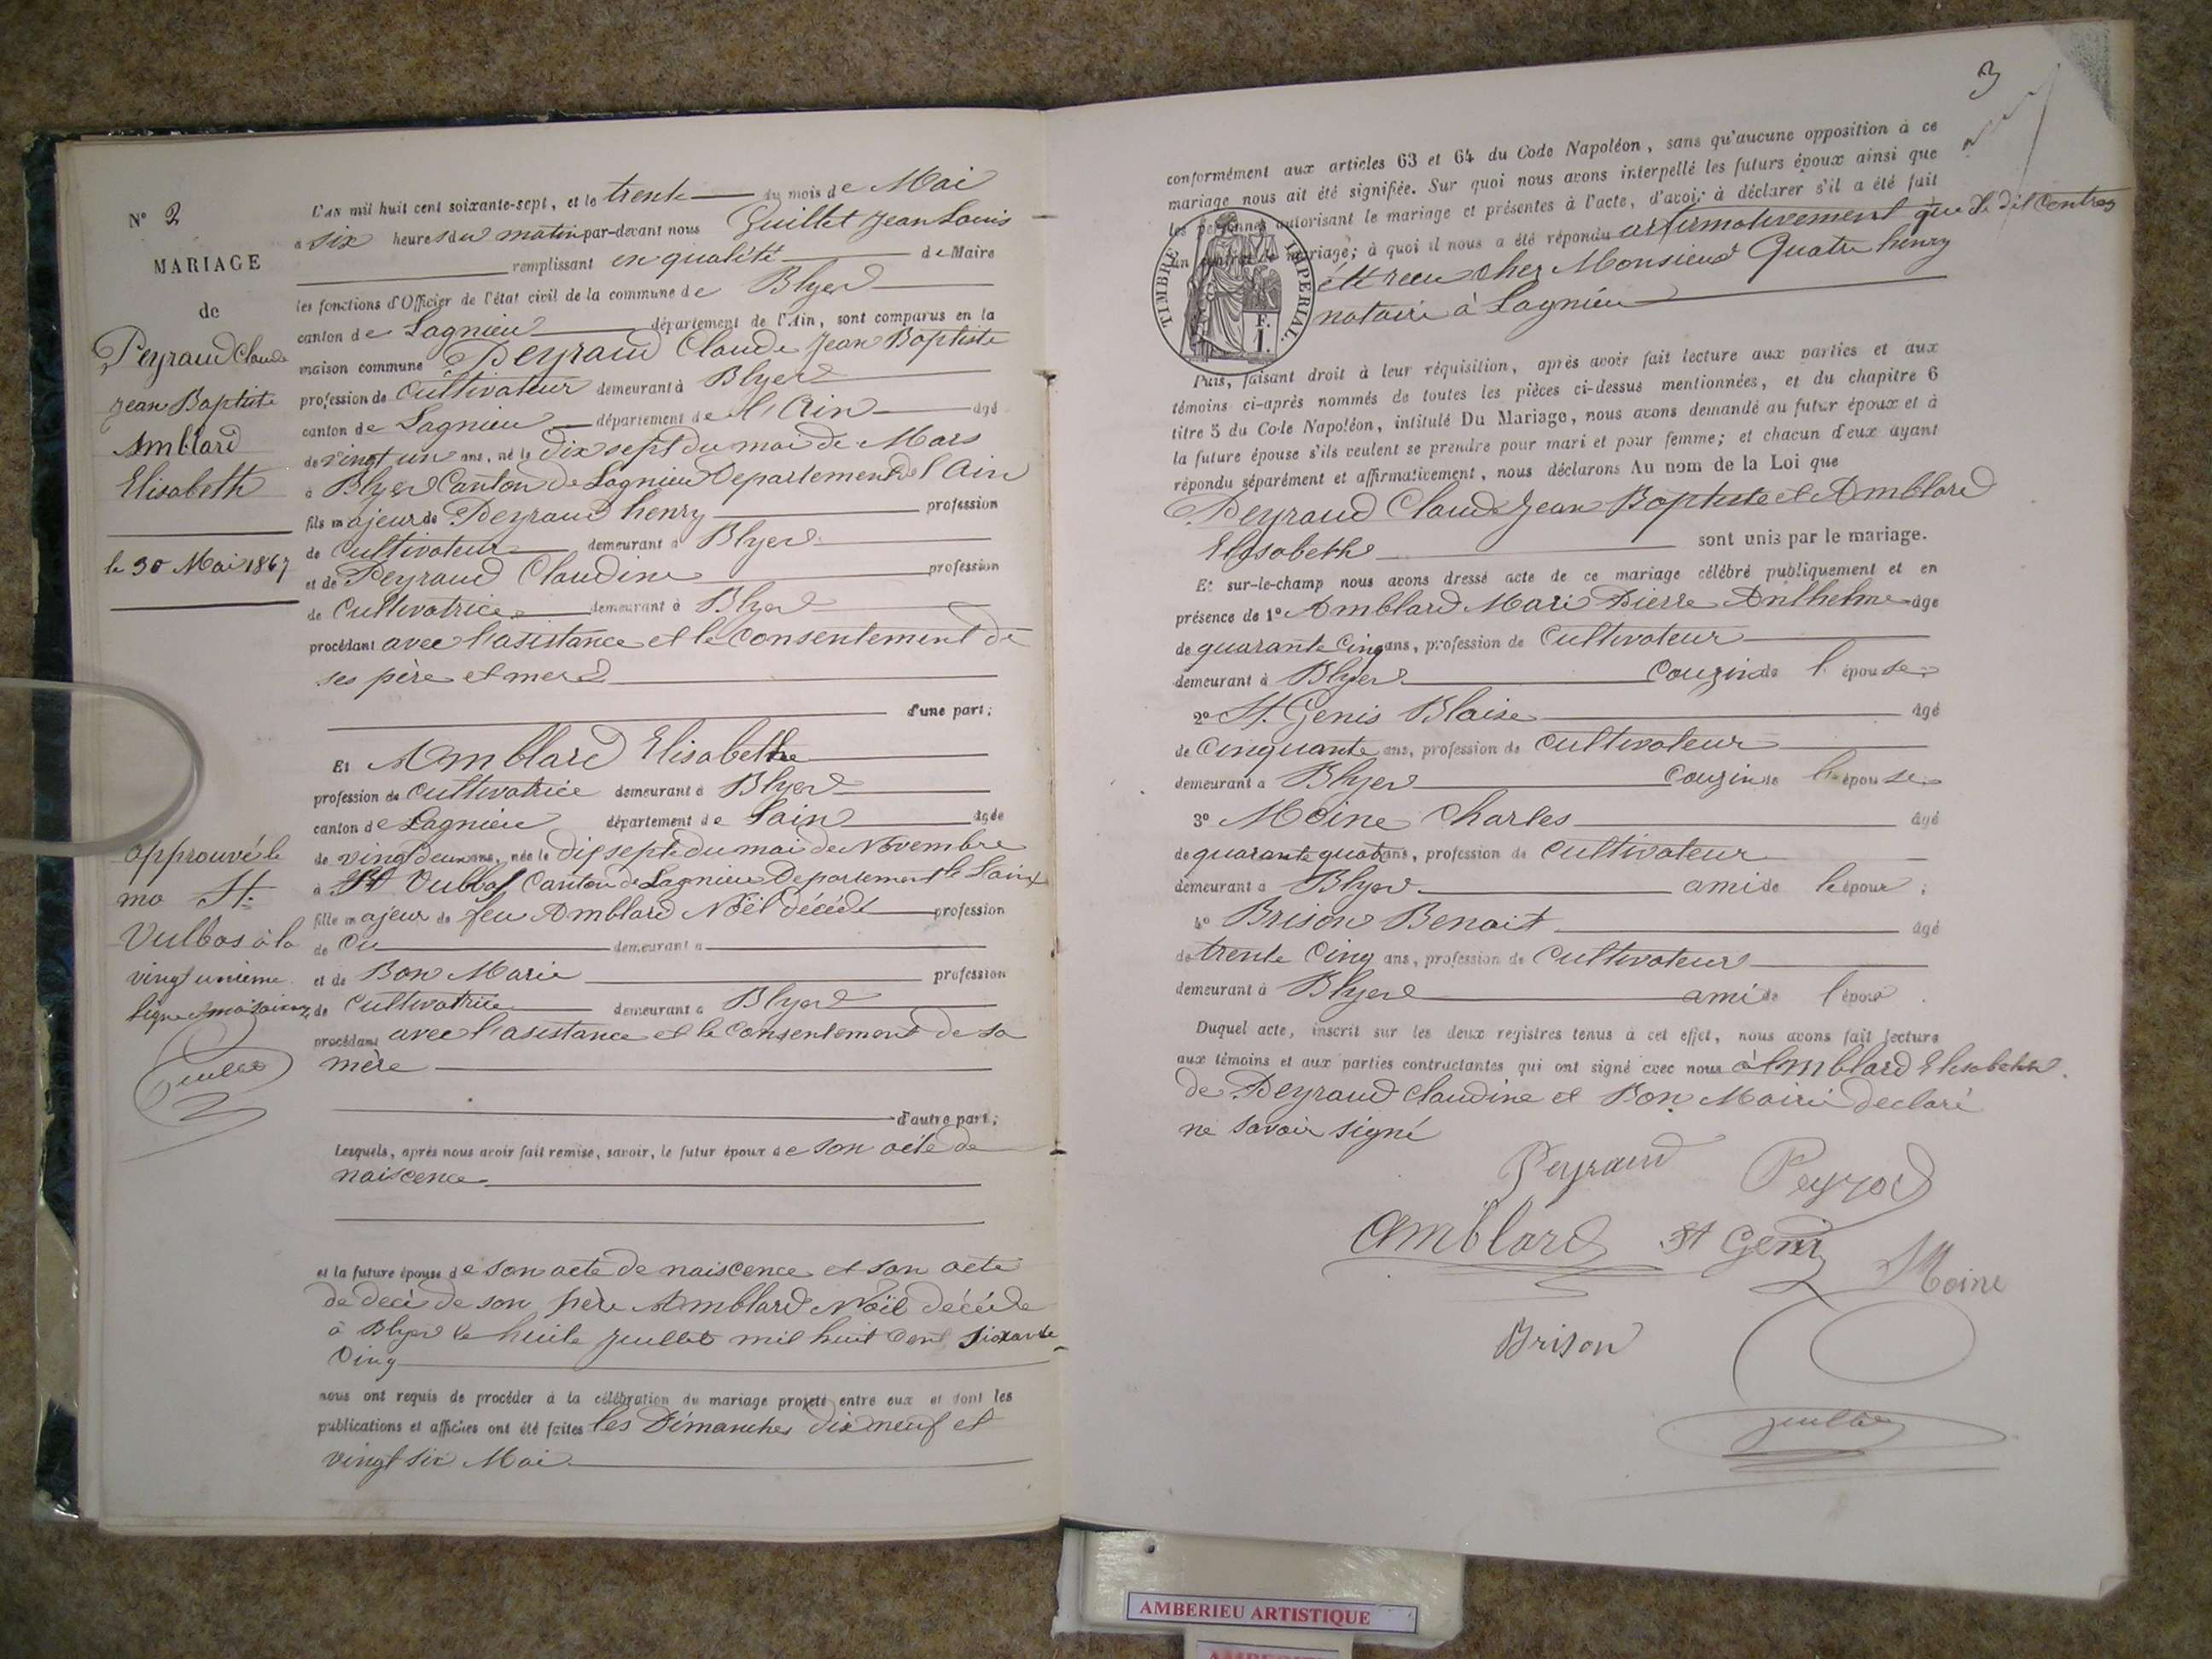 N° 2
MARIAGE
de
Peyraud Claude
Jean Baptiste
Amblard
Elisabeth
le 30 Mai 1867
approuvé le
mo St.
Vulbas à la
vingt unieme
ligne
Guillet
L'AN mil huit cent soixante-sept, et le trente du mois de Mai
à six heures du matin par-devant nous Guillet Jean Louis
remplissant en qualité de Maire
les fonctions d'Officier de l'état civil de la commune de Blyes
canton de Lagnieu département de l'Ain, sont comparus en la
maison commune Peyraud Claude Jean Baptiste
profession de Cultivateur demeurant à Blyes
canton de Lagnieu département de l'Ain âgé
de vingt un ans, né le dix sept du moi de Mars
à Blyes Canton de Lagnieu Departement de l'Ain
fils majeur de Peyraud henry profession
de Cultivateur demeurant à Blyes
et de Peyraud Claudine profession
de Cultivatrice demeurant à Blyes
procédant avec l'asistance et le Consentement de
ses père et mere
d'une part;
Et Amblard Elisabethe
profession de Cultivatrice demeurant à Blyes
canton de Lagnieu département de Lain âgée
de vingt deux ans, née le dix sept du moi de Novembre
à St Vulbas Canton de Lagnieu Departement de Lain
fille majeur de feu Amblard Noël décédé profession
de ou demeurant à
et de Bon Marie profession
de Cultivatrice demeurant à Blyes
procédant avec l'asistance et le Consentement de sa
mère
d'autre part;
Lesquels, après nous avoir fait remise, savoir, le futur époux de son acte de
naiscence
et la future épouse de son acte de naiscence et son acte
de deci de son père Amblard Noël décéde
à Blyes le huite juillet mil huit Cent sixante
Cinq
nous ont requis de procéder à la célébration du mariage projeté entre eux et dont les
publications et affiches ont été faites les Dimanches dix neuf et
vingt six Mai
3
conformément aux articles 63 et 64 du Code Napoléon, sans qu'aucune opposition à ce
mariage nous ait été signifiée. Sur quoi nous avons interpellé les futurs époux ainsi que
les personnes autorisant le mariage et présentes à l'acte, d'avoir à déclarer s'il a été fait
un contrat de mariage; à quoi il nous a été répondu affirmativement que le dit Contras
été recu cher Monsieur Quatre henry
notaire à Lagnieu
TIMBRE IMPERIAL.
F.
1.
Puis, faisant droit à leur réquisition, après avoir fait lecture aux parties et aux
témoins ci-après nommés de toutes les pièces ci-dessus mentionnées, et du chapitre 6
titre 5 du Code Napoléon, intitulé Du Mariage, nous avons demandé au futur époux et à
la future épouse s'ils veulent se prendre pour mari et pour femme; et chacun d'eux ayant
répondu séparément et affirmativement, nous déclarons Au nom de la Loi que
Peyraud Claude Jean Baptiste et Amblard
Elisabethe sont unis par le mariage.
Et sur-le-champ nous avons dressé acte de ce mariage célébré publiquement et en
présence de 1° Amblard Marie Pierre Anthelme âgé
de quarante Cinq ans, profession de Cultivateur
demeurant à Blyes Couzin de l'épouse
2° St. Genis Blaise âgé
de Cinquante ans, profession de Cultivateur
demeurant à Blyes Couzin de l'épouse
3° Moine Charles âgé
de quarante quatre ans, profession de Cultivateur
demeurant à Blyes ami de l'époux;
4° Brison Benoit âgé
de trente Cinq ans, profession de Cultivateur
demeurant à Blyes ami de l'époux.
Duquel acte, inscrit sur les deux registres tenus à cet effet, nous avons fait lecture
aux témoins et aux parties contractantes qui ont signé avec nous à Amblard Elisabethe.
de Peyraud Claudine et Bon Mairie declaré
ne savoir signé
Peyraud Peyrod
Amblard St Geni
Moine
Brison
Guillet
AMBERIEU ARTISTIQUE